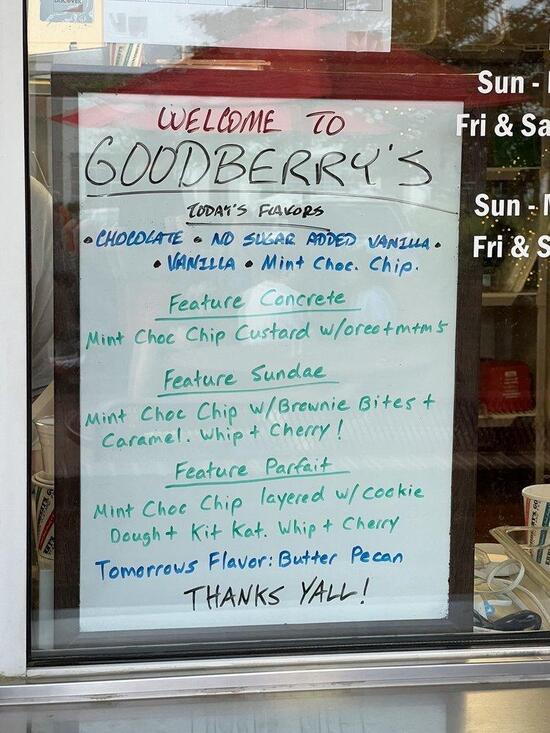 DISCOVER
Sun -
Fri & Sa
Sun -
Fri & S
WELCOME TO
GOODBERRY'S
TODAY'S FLAVORS
• CHOCOLATE • NO SUGAR ADDED VANILLA •
• VANILLA • Mint Choc. Chip.
Feature Concrete
Mint Choc Chip Custard w/oreo+m+m's
Feature Sundae
Mint Choc Chip w/Brownie Bites +
Caramel. Whip + Cherry!
Feature Parfait
Mint Choc Chip layered w/ cookie
Dough + Kit Kat. Whip + Cherry
Tomorrows Flavor: Butter Pecan
THANKS YALL!